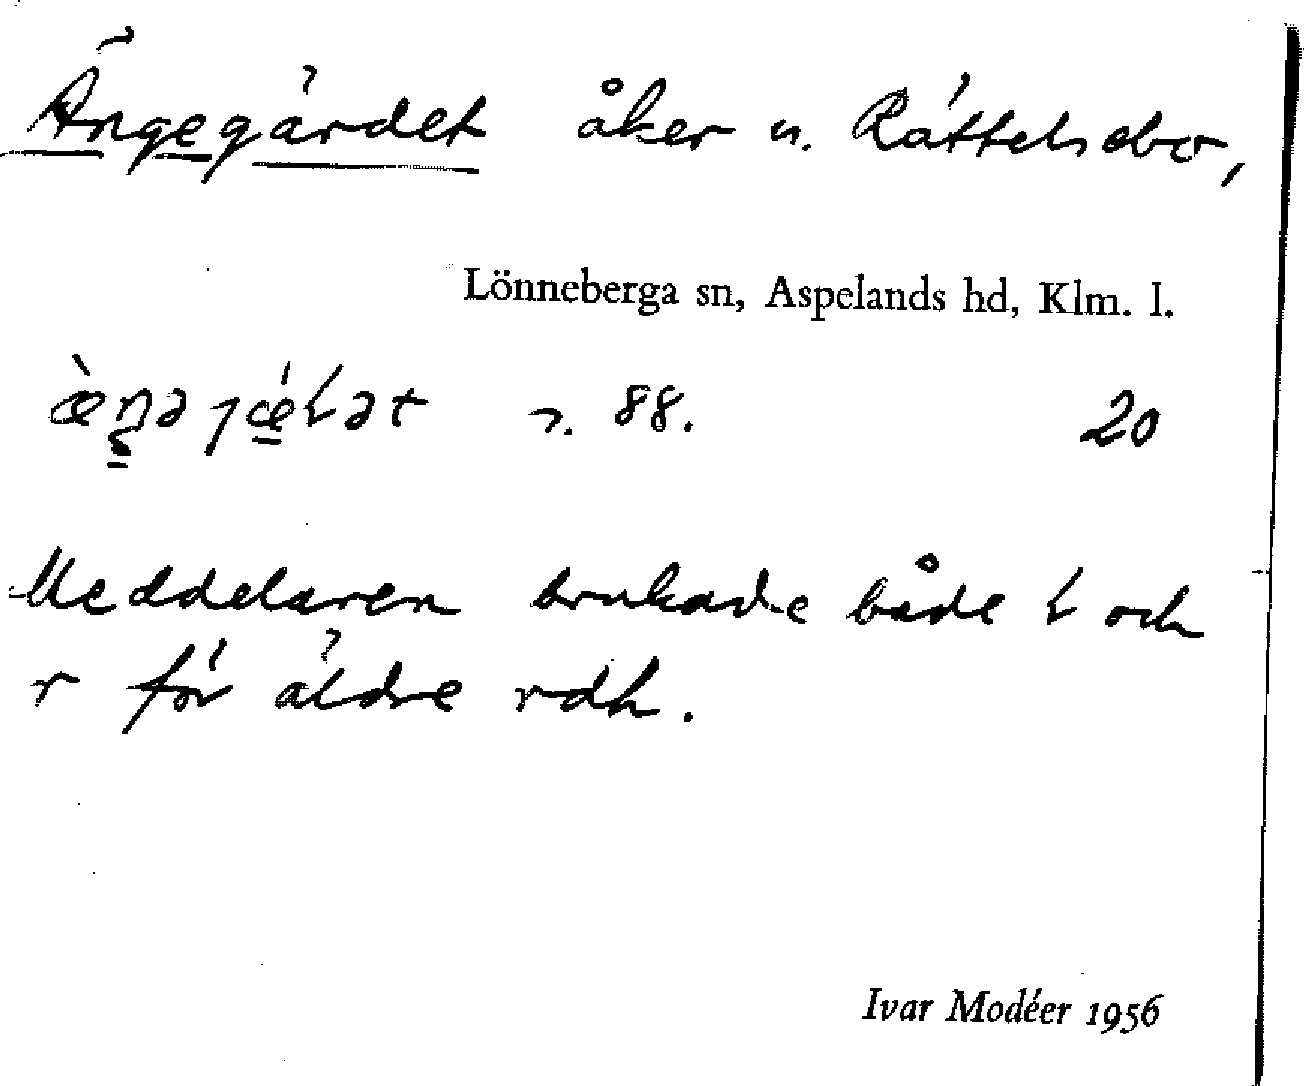 Ängegärdet åker n. Rättelsebo,
Lönneberga sn, Aspelands hd, Klm. l.
88. 20
Meddelaren brukade både och
r för äldre rdh.
Ivar Modéer 1956